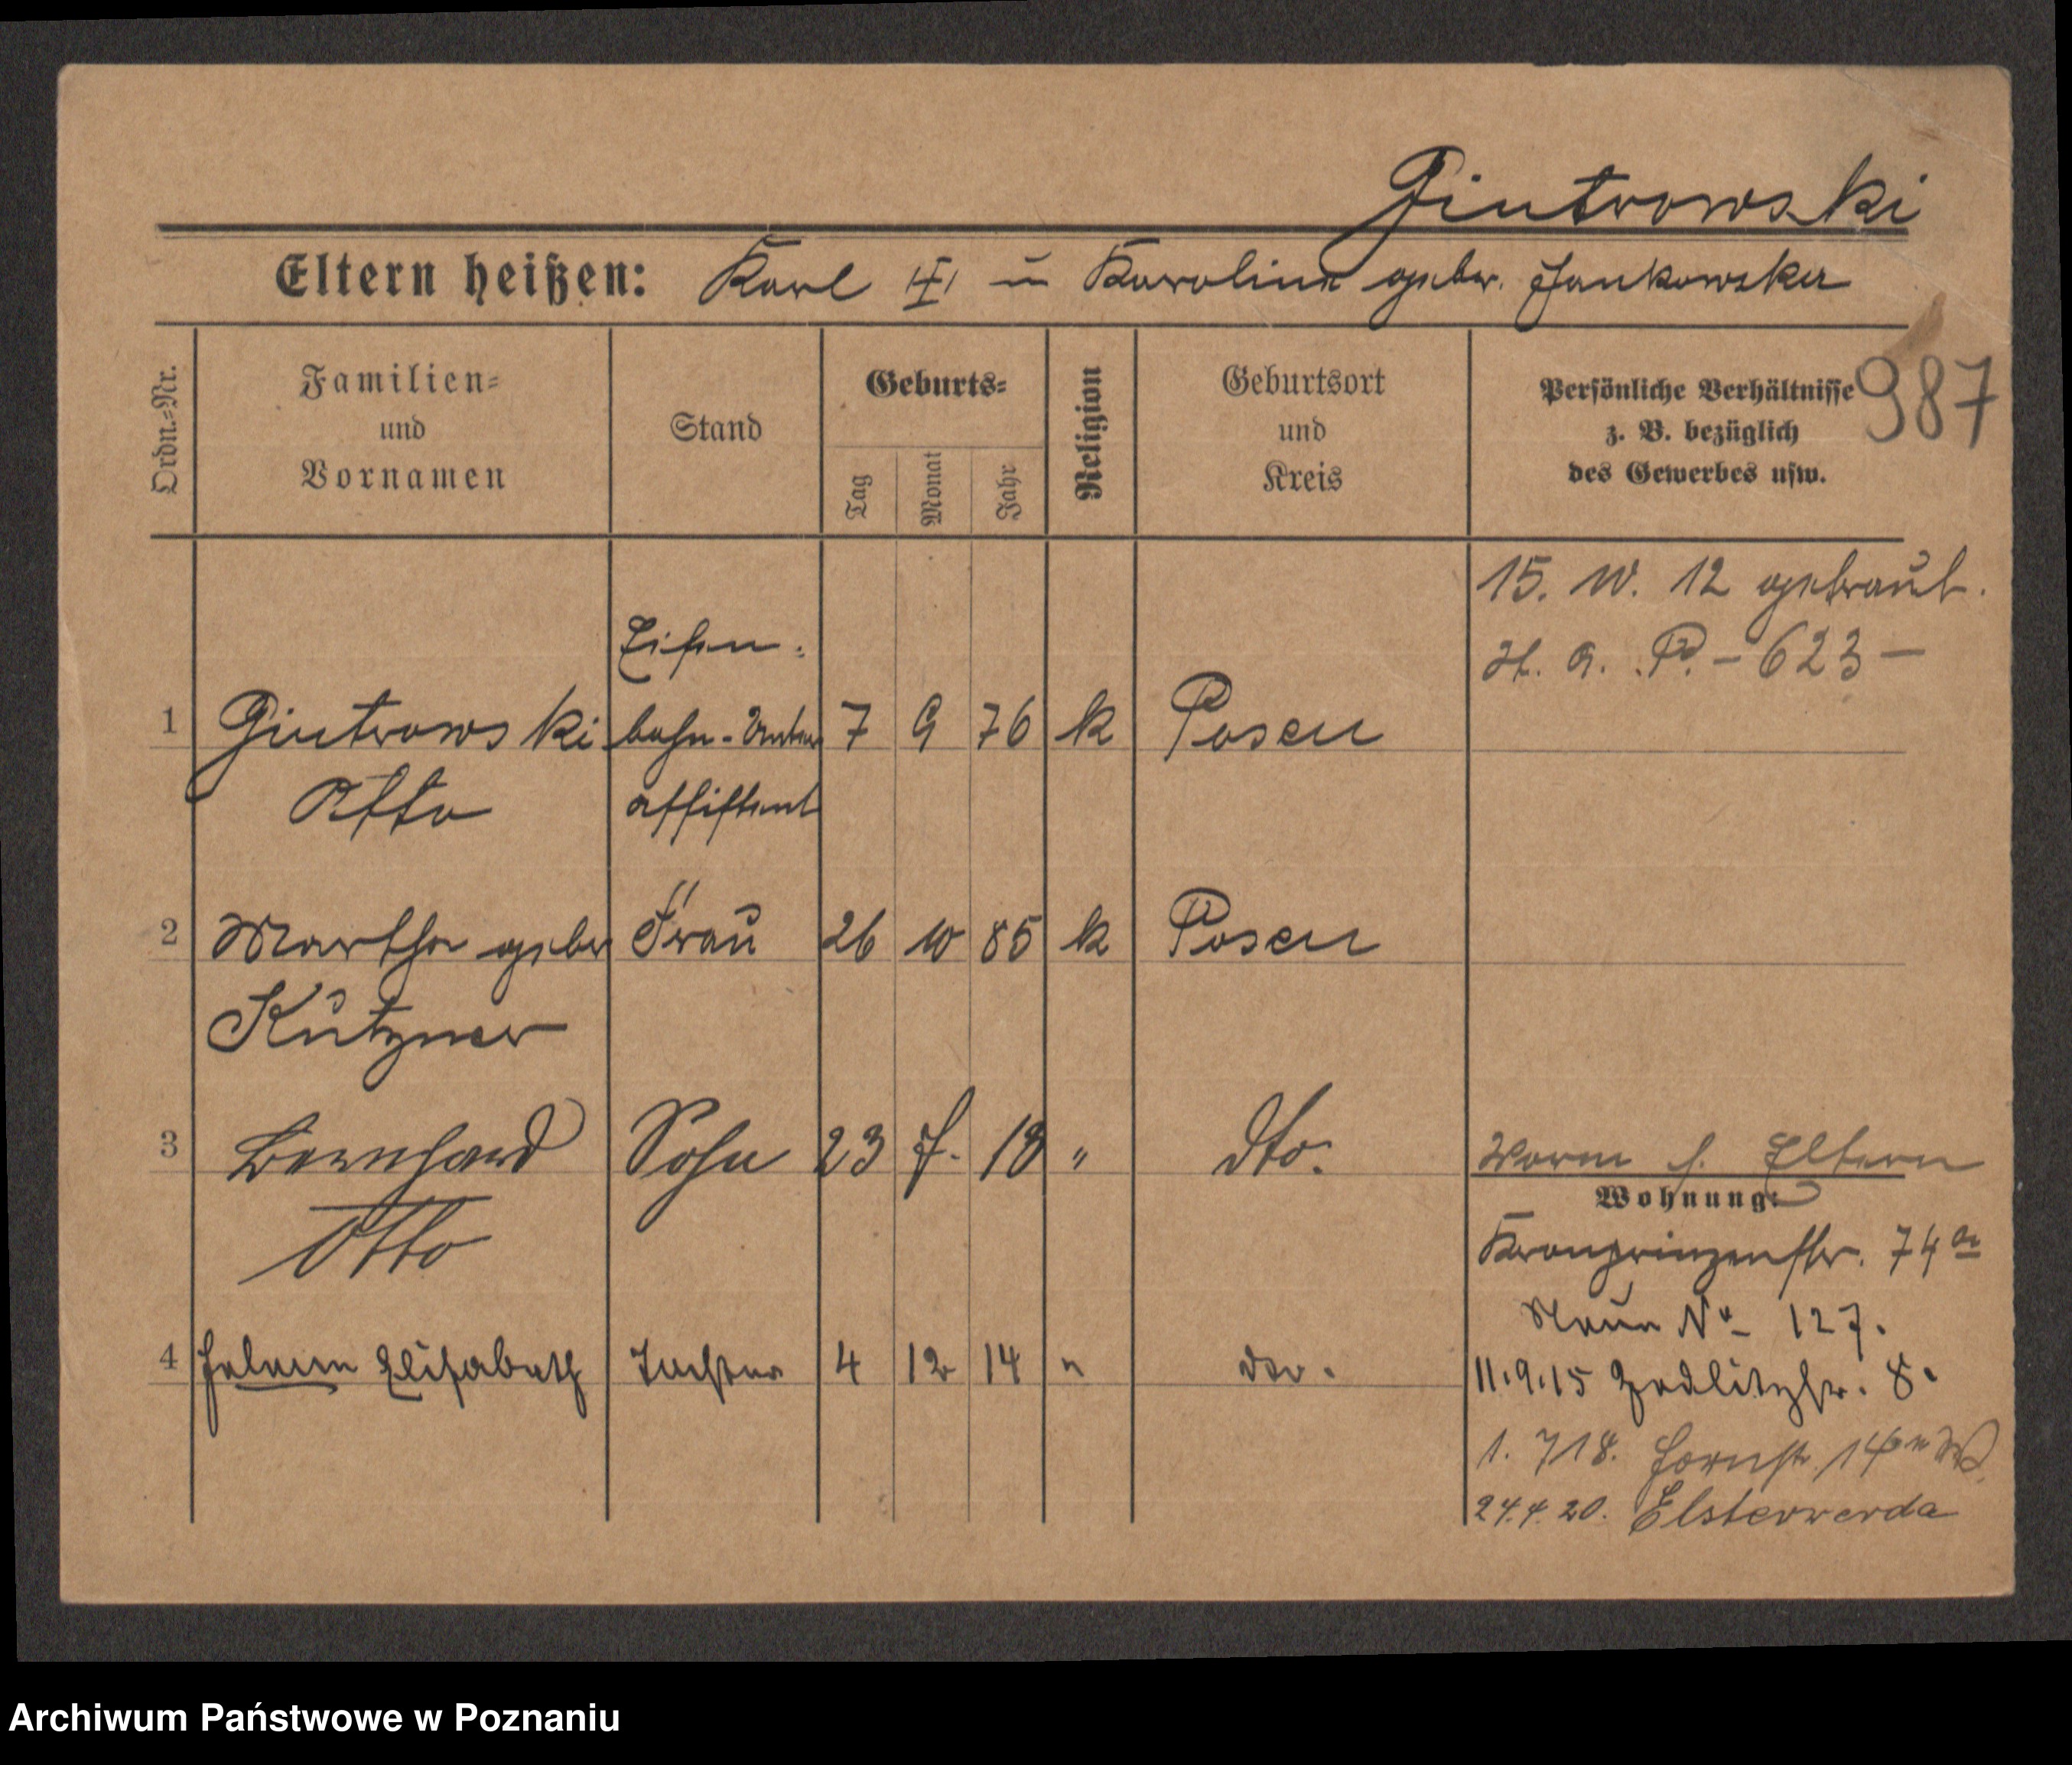 Piutrowski
Eltern heißen: Karl u Karoline geber. Jankowska
Ordn.=Nr.
Familien=
und
Vornamen
Stand
Geburts=
Tag
Monat
Jahr
Religion
Geburtsort
und
Kreis
Persönliche Verhältnisse
z. B. bezüglich
des Gewerbes usw.
987
15. 10. 12 getraut.
H. A. P. - 623 -
Eisen=
1 Piutrowski bahn-Unter 7 9 76 k Posen
Otto assistent
2 Martha geber Frau 26 10 85 k Posen
Kützner
3 Bernhard Sohn 23 7. 13 " dto. Eltern
Otto
Wohnung:
Kronprinzenstr. 74a
No 127.
4 Helene Elisabeth Tochter 4 12 14 " dto.
11.9.15 Zedlitzstr. 8.
1. 7 18.
24.4.20. Elsterwerda
Archiwum Państwowe w Poznaniu